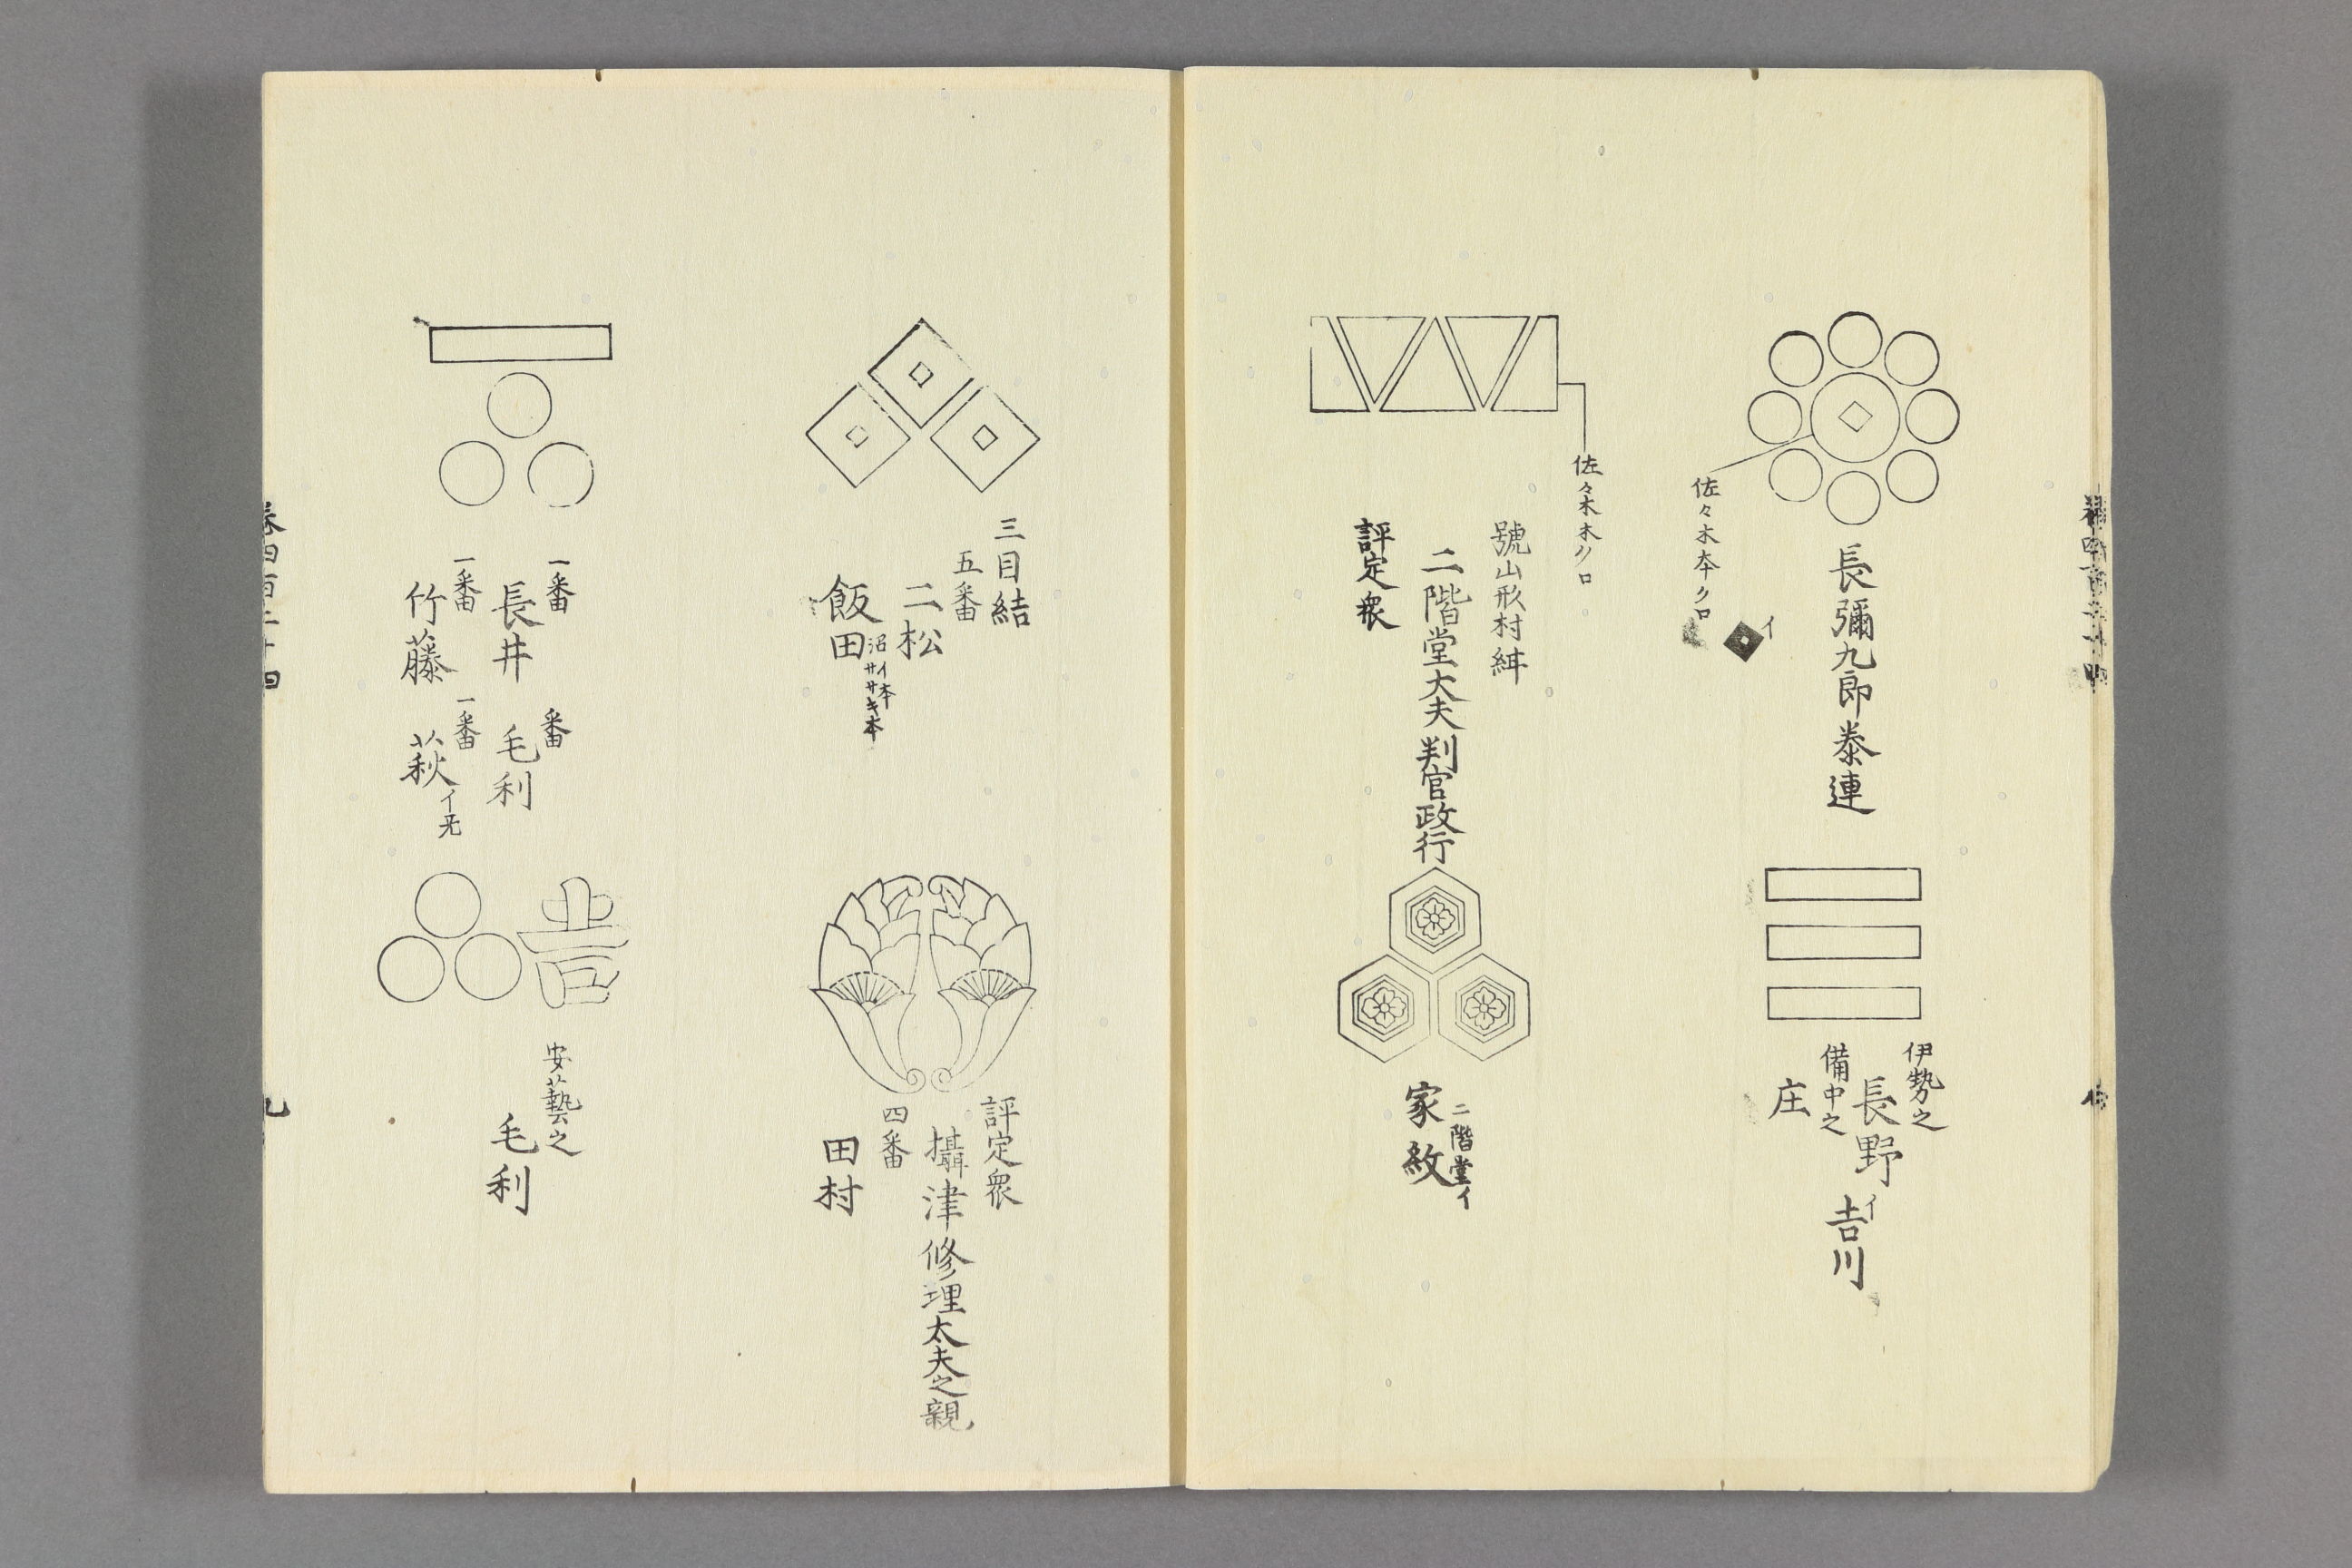 佐々木本クロ
イ
長彌九郎泰連
伊勢之
長野
イ
吉川
備中之
庄
佐々木本クロ
號山形村
二階堂大夫判官政行
評定衆
二階堂イ
家紋
三目結
五番
二松
飯田
沼イ本
サヽキ本
評定衆
攝津修理太夫之親
四番
田村
一番
長井
番
毛利
一番
竹藤
一番
萩
吉
安藝之
毛利
卷四百二十四
九